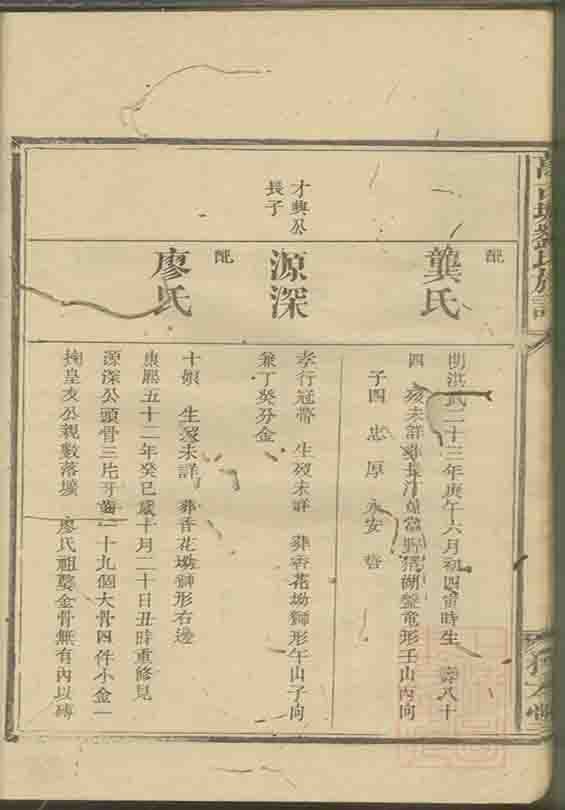 劉氏族譜
配
龔氏
明洪武二十三年庚午六月初四寅時生 壽八十
四 歿未詳葬長汀 窩野猪湖盤龍形壬山丙向
子四 忠 厚 永安
才興公
長子
源深
孝行冠帶 生歿未詳 葬香花坳獅形午山子向
兼丁癸分金
配
廖氏
十娘 生歿未詳 葬香花坳獅形右邊
康熙五十二年癸巳歲十月二十日丑時重修見
源深公頭骨三片牙齒二十九個大骨四件小金一
掬皇友公親數落壙 廖氏祖婆金骨無有內以磚